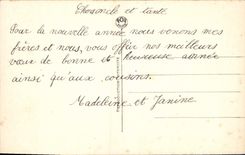 Chers oncle et tante
Pour la nouvelle année nous venons mes
frères et nous, vous offrir nos meilleurs
vœux de bonne et heureuse année
ainsi qu'aux cousins.
Madeleine et Janine